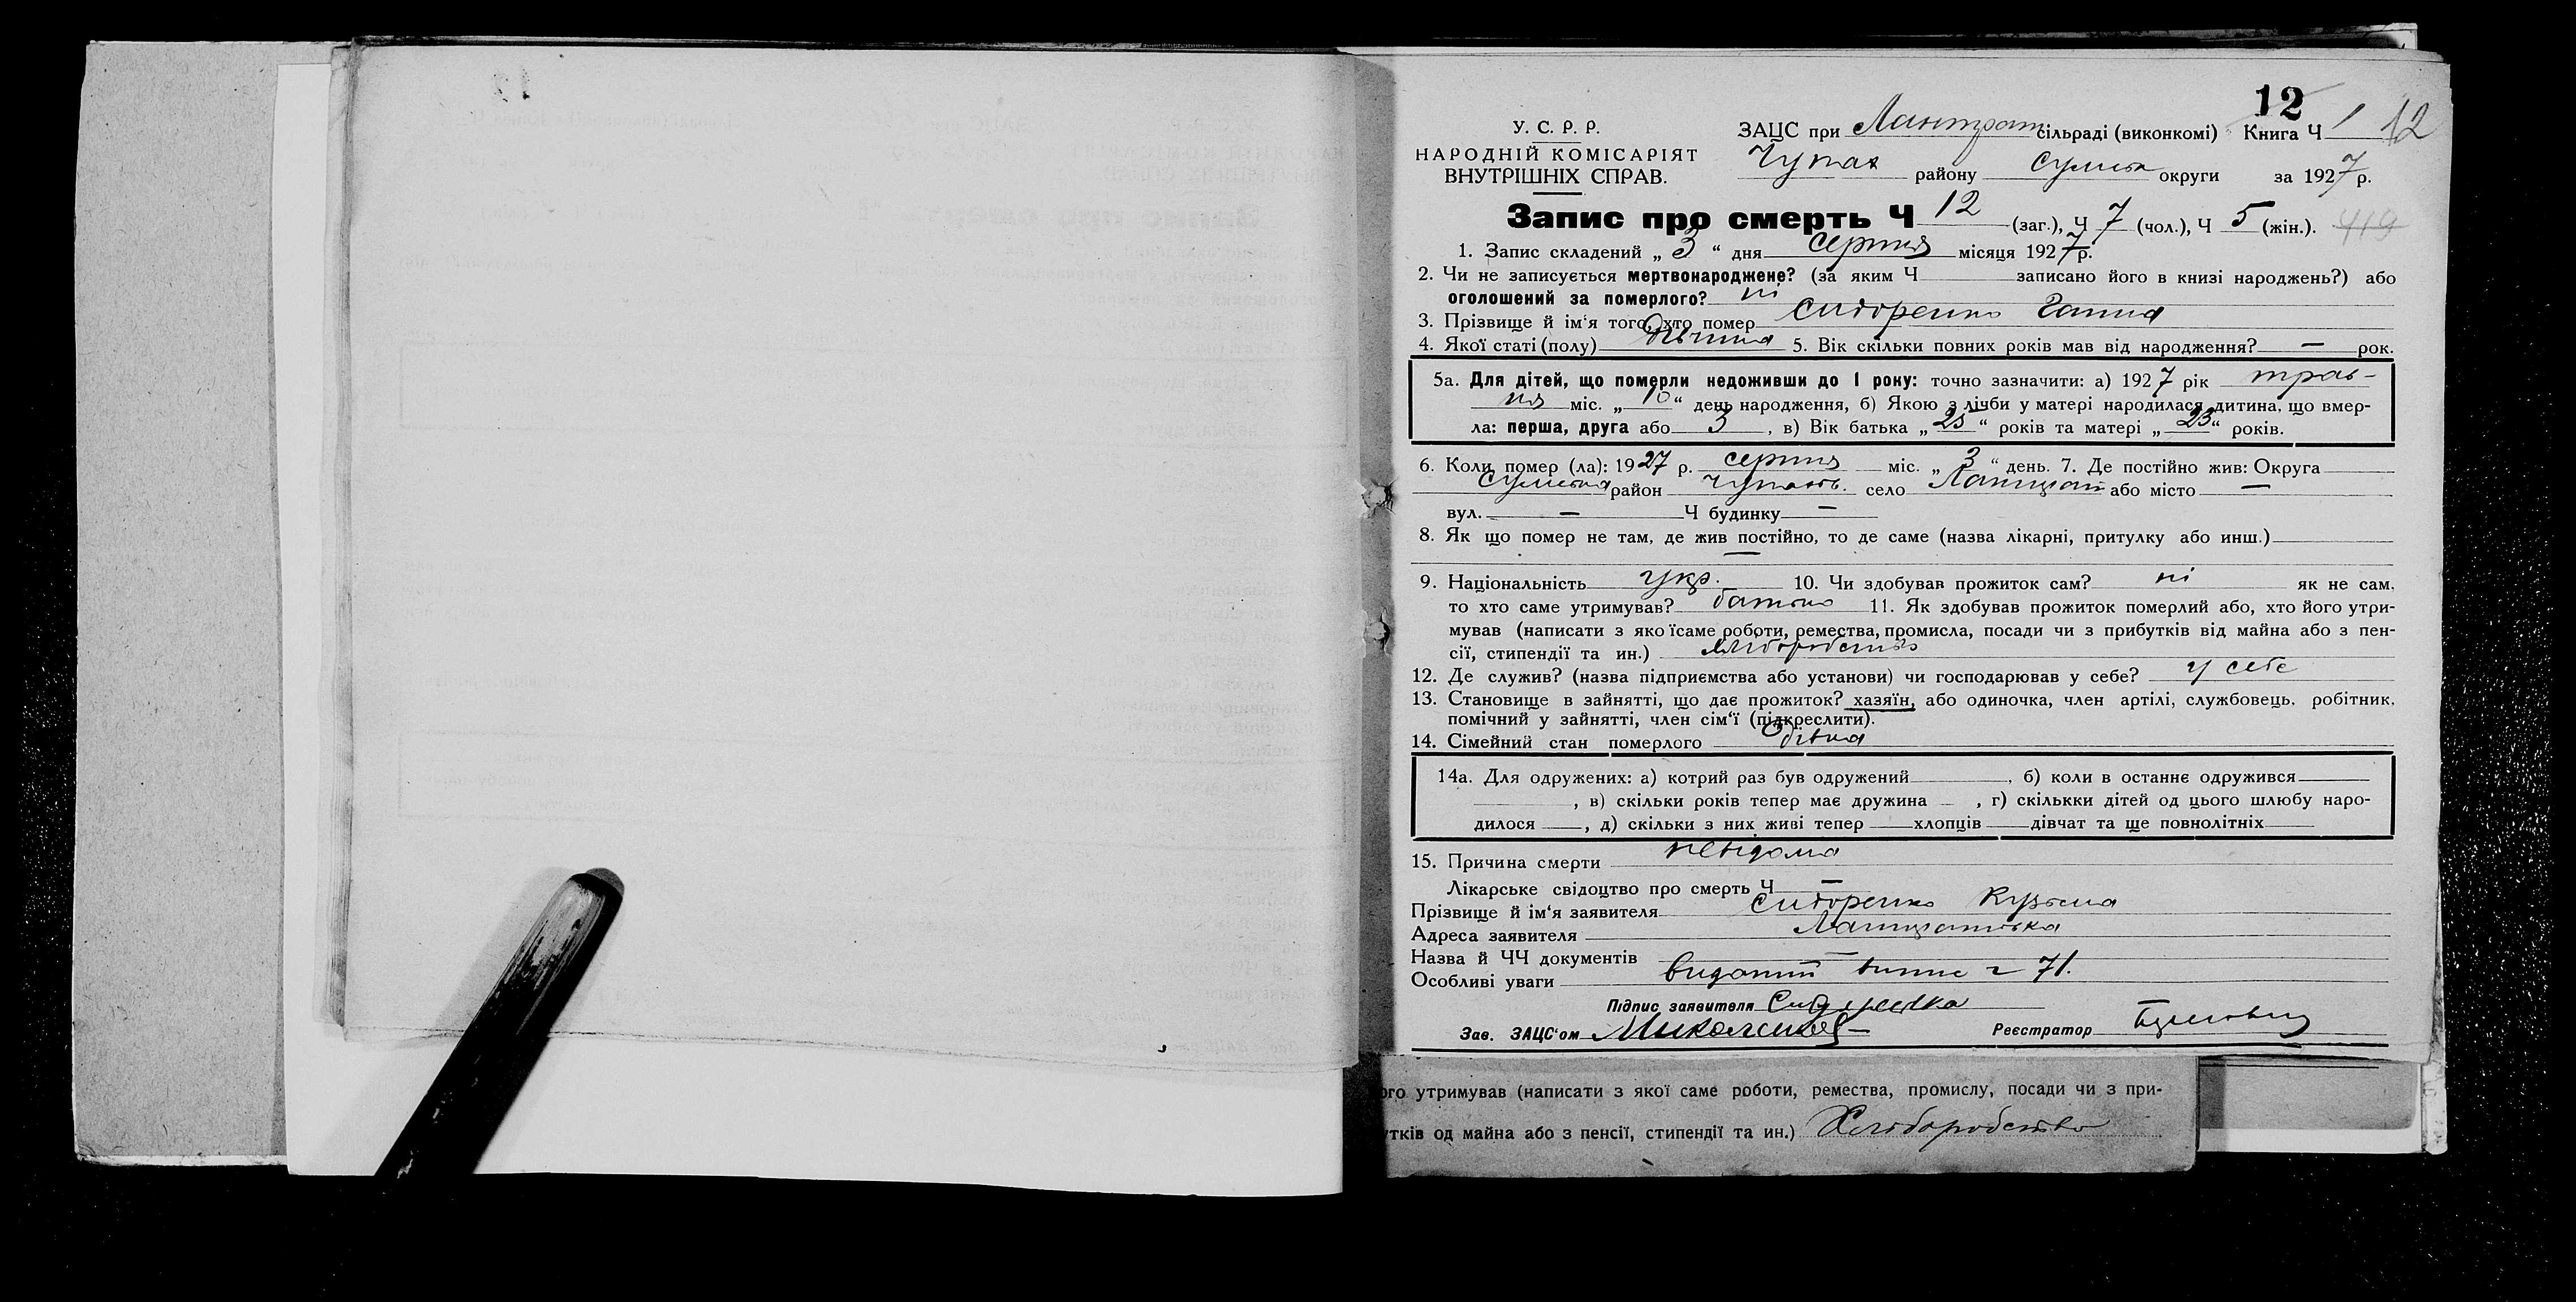 12
У. С. Р. Р.
НАРОДНІЙ КОМІСАРІЯТ
ВНУТРІШНІХ СПРАВ.
ЗАЦС при Лантрат сільраді (виконкомі) Книга Ч 1 12
Чупах району Сумськ округи за 1927 р.
Запис про смерть Ч 12 (заг.), Ч 7 (чол.), Ч 5 (жін.). 419
1. Запис складений „ 3 “ дня серпня місяця 1927 р.
2. Чи не записується мертвонароджене? (за яким Ч записано його в книзі народжень?) або
оголошений за померлого? ні
3. Прізвище й ім‘я того, хто помер Сидоренко Ганна
4. Якої статі (полу) дівчина 5. Вік скільки повних років мав від народження? — рок.
5а. Для дітей, що померли недоживши до 1 року: точно зазначити: а) 1927 рік трав-
ня міс. „ 10 “ день народження, б) Якою з лічби у матері народилася дитина, що вмер-
ла: перша, друга або 3 , в) Вік батька „ 25 “ років та матері „ 23 “ років.
6. Коли помер (ла): 1927 р. серпня міс. „ 3 “ день. 7. Де постійно жив: Округа
Сумська район Чупахів. село або місто —
вул. — Ч будинку —
8. Як що помер не там, де жив постійно, то де саме (назва лікарні, притулку або инш.)
—
9. Національність укр. 10. Чи здобував прожиток сам? ні як не сам,
то хто саме утримував? батько 11. Як здобував прожиток померлий або, хто його утри-
мував (написати з яко їсаме роботи, ремества, промисла, посади чи з прибутків від майна або з пен-
сії, стипендії та ин.) хліборобство
12. Де служив? (назва підприємства або установи) чи господарював у себе? у себе
13. Становище в зайнятті, що дає прожиток? хазяїн, або одиночка, член артілі, службовець, робітник,
помічний у зайнятті, член сім‘ї (підкреслити).
14. Сімейний стан померлого дівка
14а. Для одружених: а) котрий раз був одружений , б) коли в останнє одружився
, в) скільки років тепер має дружина — , г) скількки дітей од цього шлюбу наро-
дилося , д) скільки з них живі тепер хлопців дівчат та ще повнолітніх
15. Причина смерти невідома
Лікарське свідоцтво про смерть Ч —
Прізвище й ім‘я заявителя Сидоренко Кузьма
Адреса заявителя
Назва й ЧЧ документів —
Особливі уваги виданий випис 71.
Підпис заявителя
Зав. ЗАЦС‘ом Реєстратор
ого утримував (написати з якої саме роботи, ремества, промислу, посади чи з при-
утків од майна або з пенсії, стипендії та ин.) Хліборобство